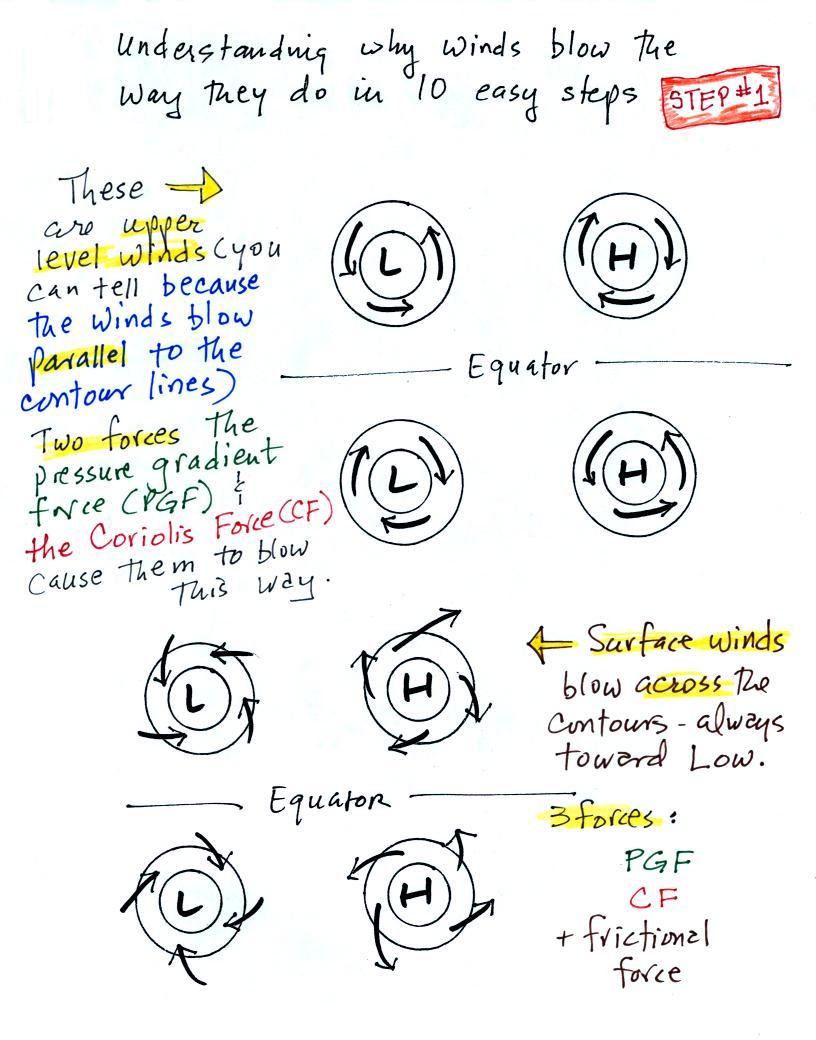 Understanding why winds blow the
way they do in 10 easy steps STEP #1
These →
are upper
level winds (you
can tell because
the winds blow
parallel to the
contour lines)
Two forces the
pressure gradient
force (PGF) &
the Coriolis Force (CF)
cause them to blow
this way.
L H
Equator
L H
L H
← Surface winds
blow across the
contours - always
toward Low.
Equator
L H
3 forces:
PGF
CF
+ frictional
force